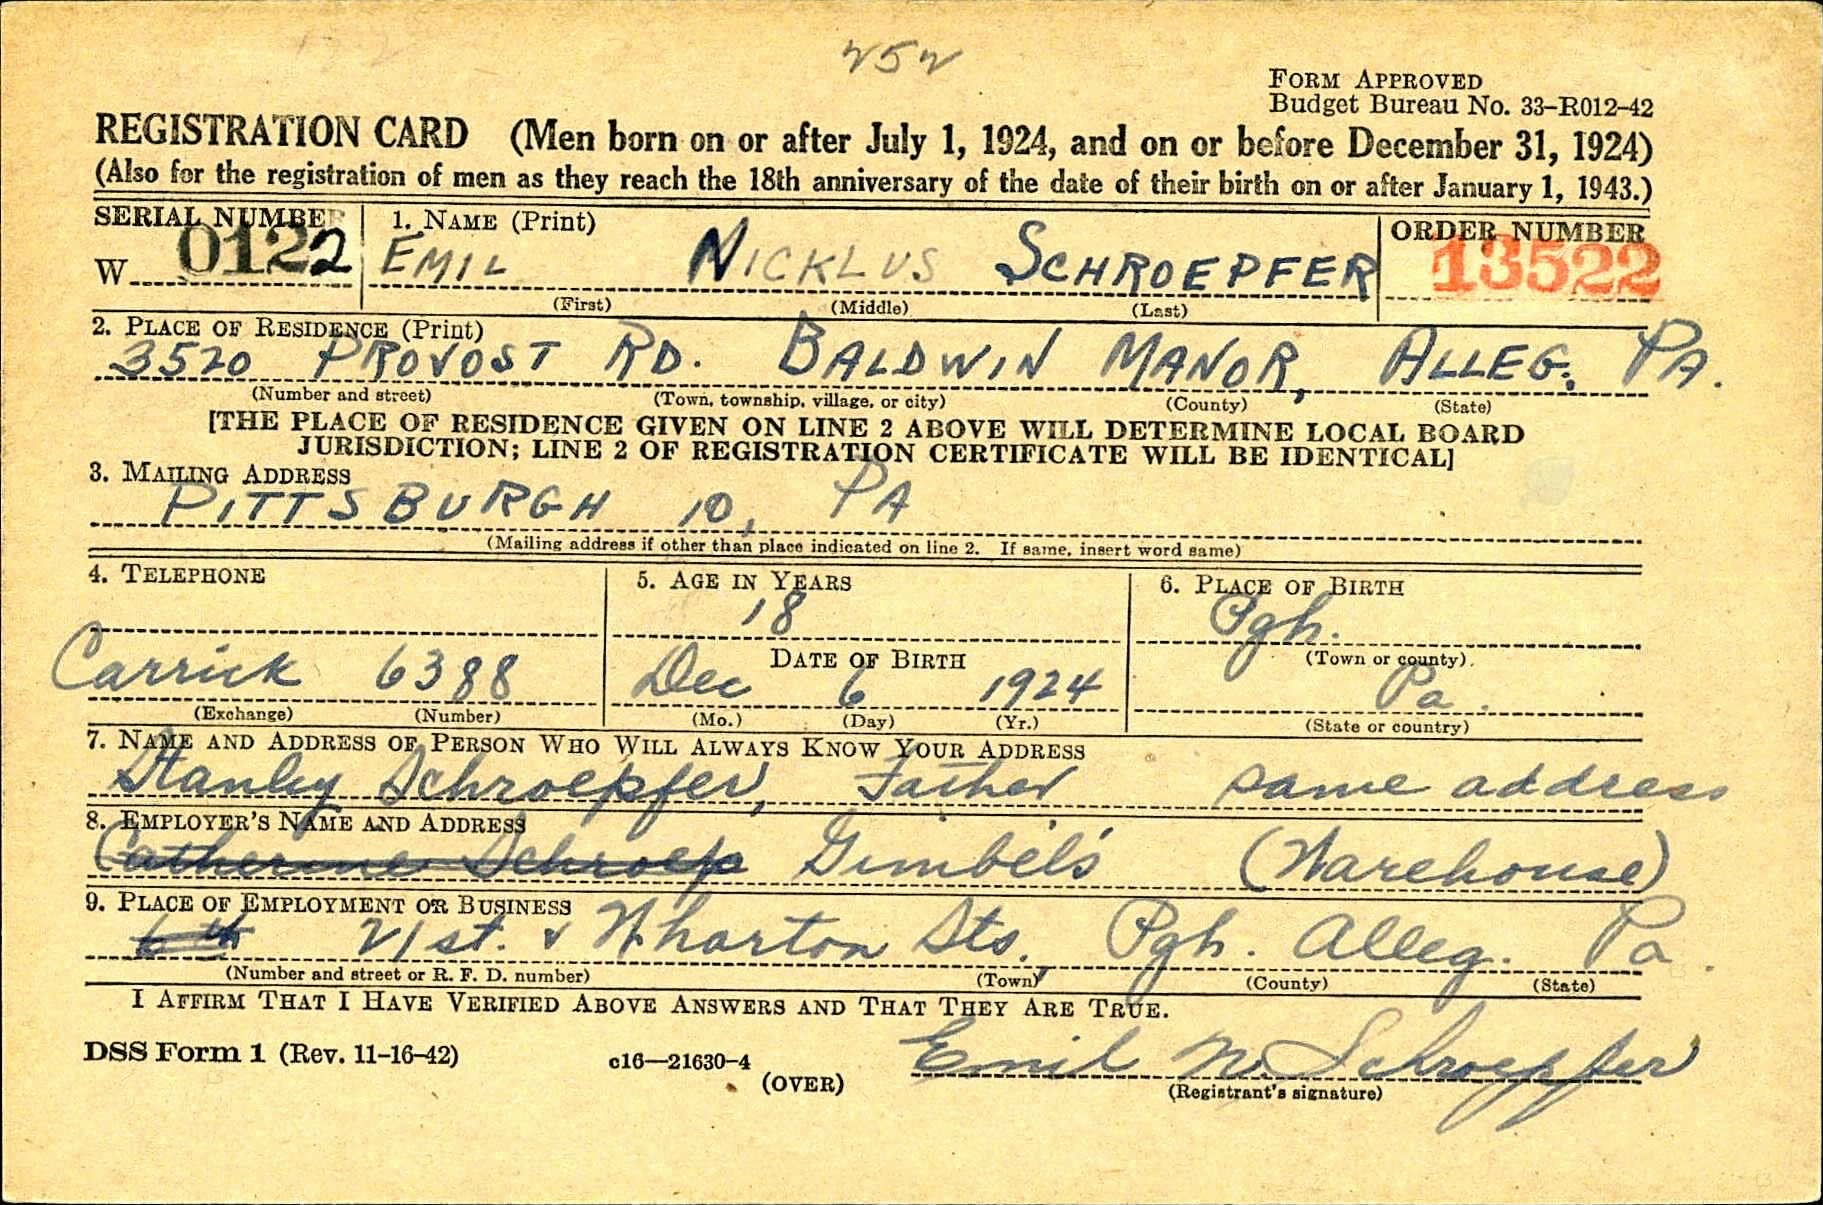 252
FORM APPROVED
Budget Bureau No. 33-R012-42
REGISTRATION CARD (Men born on or after July 1, 1924, and on or before December 31, 1924)
(Also for the registration of men as they reach the 18th anniversary of the date of their birth on or after January 1, 1943.)
SERIAL NUMBER 1. NAME (Print) ORDER NUMBER
W 0122 EMIL NICKLUS SCHROEPFER 13522
(First) (Middle) (Last)
2. PLACE OF RESIDENCE (Print)
3520 PROVOST RD. BALDWIN MANOR, ALLEG. PA.
(Number and street) (Town, township, village, or city) (County) (State)
[THE PLACE OF RESIDENCE GIVEN ON LINE 2 ABOVE WILL DETERMINE LOCAL BOARD
JURISDICTION; LINE 2 OF REGISTRATION CERTIFICATE WILL BE IDENTICAL]
3. MAILING ADDRESS
PITTSBURGH 10, PA
(Mailing address if other than place indicated on line 2. If same, insert word same)
4. TELEPHONE 5. AGE IN YEARS 6. PLACE OF BIRTH
18 Pgh.
DATE OF BIRTH (Town or county)
Carrick 6388 Dec 6 1924 Pa.
(Exchange) (Number) (Mo.) (Day) (Yr.) (State or country)
7. NAME AND ADDRESS OF PERSON WHO WILL ALWAYS KNOW YOUR ADDRESS
Stanley Schroepfer, Father same address
8. EMPLOYER'S NAME AND ADDRESS
Catherine Schroep Gimbel's (Warehouse)
9. PLACE OF EMPLOYMENT OR BUSINESS
6th 21st. & Wharton Sts., Pgh. Alleg. Pa.
(Number and street or R. F. D. number) (Town) (County) (State)
I AFFIRM THAT I HAVE VERIFIED ABOVE ANSWERS AND THAT THEY ARE TRUE.
DSS Form 1 (Rev. 11-16-42) c16—21630-4 Emil N. Schroepfer
(OVER) (Registrant's signature)